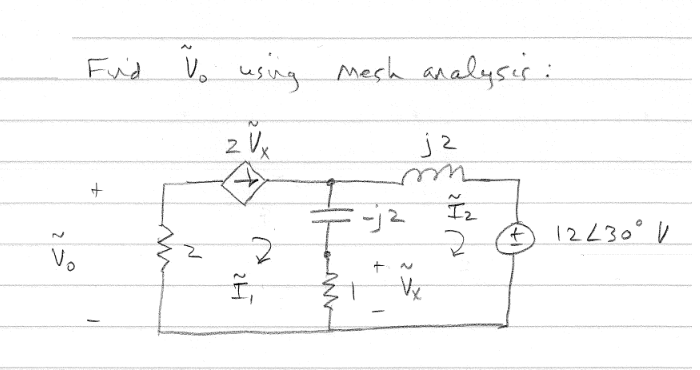 Find Ṽo using mesh analysis:
2 Ṽx
j2
+
-j2
Ĩ2
12∠30° V
Ṽo
2
Ĩ1
1
+
Ṽx
-
-
+
-